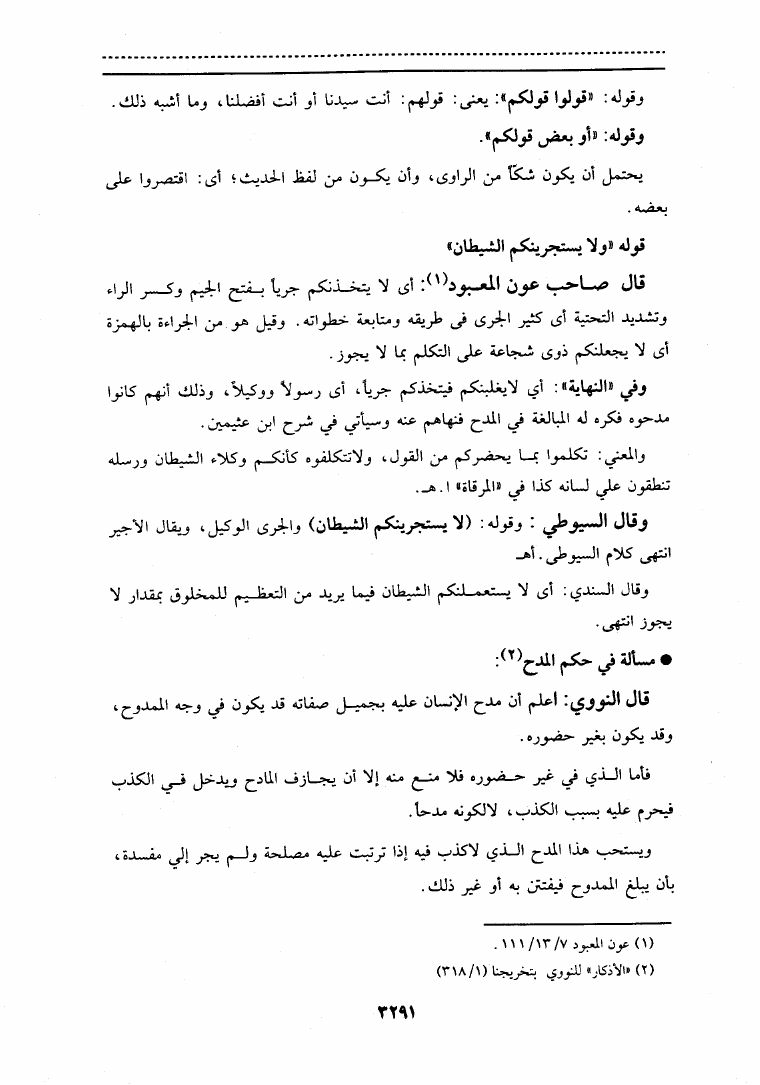 وقوله: «قولوا قولكم»: يعنى: قولهم: أنت سيدنا أو أنت أفضلنا، وما أشبه ذلك.
وقوله: «أو بعض قولكم».
يحتمل أن يكون شكّاً من الراوى، وأن يكون من لفظ الحديث؛ أى: اقتصروا على
بعضه.
قوله «ولا يستجرينكم الشيطان»
قال صاحب عون المعبود(١): أى لا يتخذنكم جرياً بفتح الجيم وكسر الراء
وتشديد التحتية أى كثير الجرى فى طريقه ومتابعة خطواته. وقيل هو من الجراءة بالهمزة
أى لا يجعلنكم ذوى شجاعة على التكلم بما لا يجوز.
وفي «النهاية»: أي لايغلبنكم فيتخذكم جرياً، أى رسولاً ووكيلاً، وذلك أنهم كانوا
مدحوه فكره له المبالغة في المدح فنهاهم عنه وسيأتي في شرح ابن عثيمين.
والمعني: تكلموا بما يحضركم من القول، ولاتتكلفوه كأنكم وكلاء الشيطان ورسله
تنطقون علي لسانه كذا في «المرقاة» ا.هـ.
وقال السيوطي : وقوله: (لا يستجرينكم الشيطان) والجرى الوكيل، ويقال الأجير
انتهى كلام السيوطى. أهـ
وقال السندي: أى لا يستعملنكم الشيطان فيما يريد من التعظيم للمخلوق بمقدار لا
يجوز انتهى.
● مسألة في حكم المدح(٢):
قال النووي: اعلم أن مدح الإنسان عليه بجميل صفاته قد يكون في وجه الممدوح،
وقد يكون بغير حضوره.
فأما الذي في غير حضوره فلا منع منه إلا أن يجازف المادح ويدخل في الكذب
فيحرم عليه بسبب الكذب، لالكونه مدحاً.
ويستحب هذا المدح الذي لاكذب فيه إذا ترتبت عليه مصلحة ولم يجر إلي مفسدة،
بأن يبلغ الممدوح فيفتتن به أو غير ذلك.
(١) عون المعبود ٧/ ١٣/ ١١١ .
(٢) «الأذكار» للنووي بتخريجنا (١/ ٣١٨)
٣٢٩١